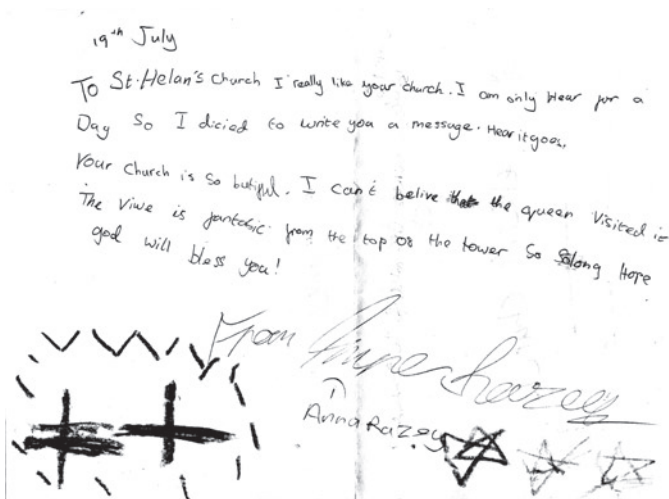 19th July
To St. Helan's Church I really like your church. I am only Hear for a
Day So I dicied to write you a message. Hear it goes.
Your Church is So butiful. I can't belive that the queen Visited it
The Viwe is fantasic from the top of the tower So Solong Hope
god will bless you!
From
Anna Razey